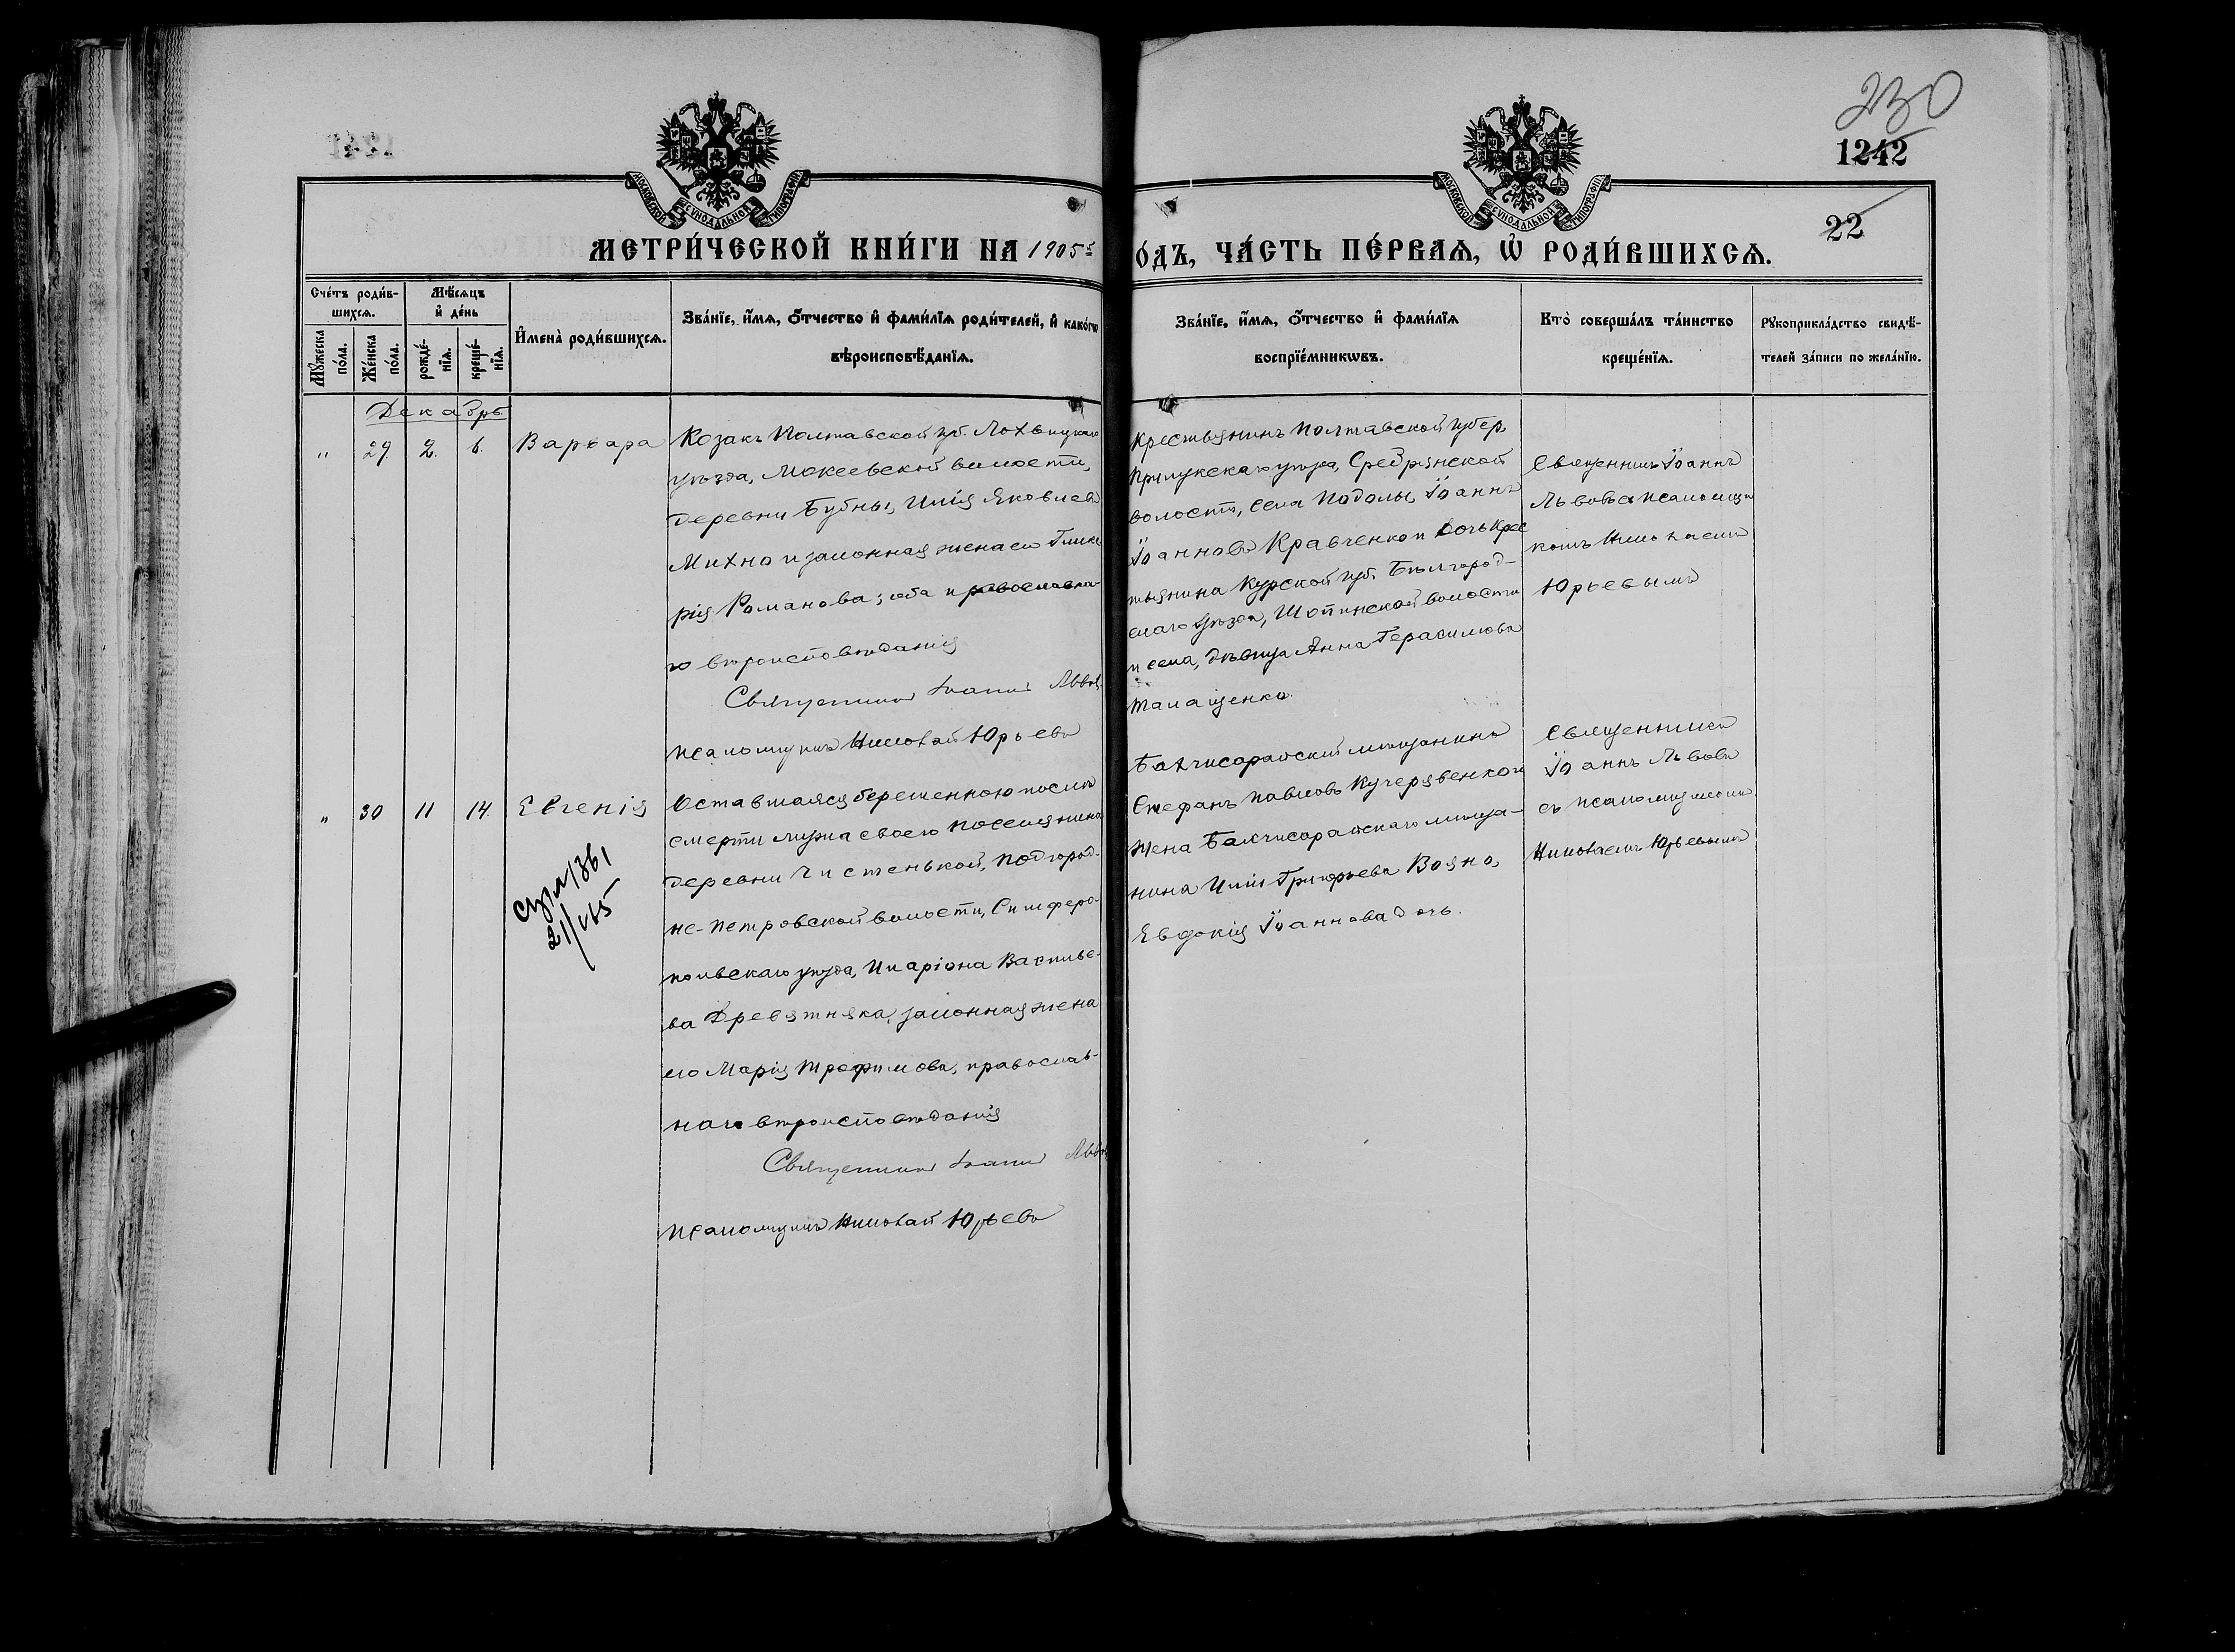 230
1242
22
МОСКОВСКОЙ СѴНОДАЛЬНОЙ ТИПОГРАФІИ
МОСКОВСКОЙ СѴНОДАЛЬНОЙ ТИПОГРАФІИ
МЕТРИ́ЧЕСКОЙ КНИ́ГИ НА 1905
О́ДЪ, ЧА́СТЬ ПЕ́РВАЯ, Ѡ РОДИ́ВШИХСЯ.
Сче́тъ роди́в-
шихся.
Мѣ́сяцъ
и де́нь
Мꙋ́жеска по́ла.
Же́нска по́ла.
рожде́-
нїя.
креще́-
нїя.
И҆мена̀ роди́вшихся.
Зва́нїе, и҆́мя, ѻ҆́тчество и҆ фами́лїя роди́телей, и҆ како́гѡ
вѣроисповѣ́данїя.
Зва́нїе, и҆́мя, ѻ҆́тчество и҆ фами́лїя
воспрїе́мникѡвъ.
Кто̀ соверша́лъ та́инство
креще́нїя.
Рꙋкоприкла́дство свидѣ́-
телей за́писи по жела́нїю.
Декабрь
" 29 2. 6. Варвара
Козакъ Полтавской губ. Лохвицкаго
уѣзда, Мокеевской волости,
деревни Бубны, Илія Яковлевъ
Михно и законная жена его Глике
рія Романова; оба православна-
го вѣроисповѣданія
Священникъ Іоаннъ Львовъ
псаломщикъ Николай Юрьевъ
Крестьянинъ Полтавской губер.
Прилукскаго уѣзда, Сребрянской
волости, села Подолы Іоаннъ
Іоанновъ Кравченко и дочь крес
тьянина Курской губ. Бѣлгород-
скаго уѣзда, Шопинской волости
и села, дѣвица Анна Герасимова
Талащенко.
Священникъ Іоаннъ
Львовъ съ псаломщи
комъ Николаемъ
Юрьевымъ
" 30 11 14. Евгенія
21/
Оставшаяся беременною послѣ
смерти мужа своего поселянина
деревни Чистенькой, Подгород-
не-Петровской волости, Симферо-
польскаго уѣзда, Иларіона Василье-
ва Древятняка, законная жена
его Марія Трофимова, православ-
наго вѣроисповѣданія
Священникъ Іоаннъ Львовъ
псаломщикъ Николай Юрьевъ
Бахчисарайскій мѣщанинъ
Стефанъ Павловъ Кучерявенко и
жена Бахчисарайскаго мѣща-
нина Иліи Григорьева Вояно,
Евдокія Іоаннова дочь.
Священникъ
Іоаннъ Львовъ
съ псаломщикомъ
Николаемъ Юрьевымъ